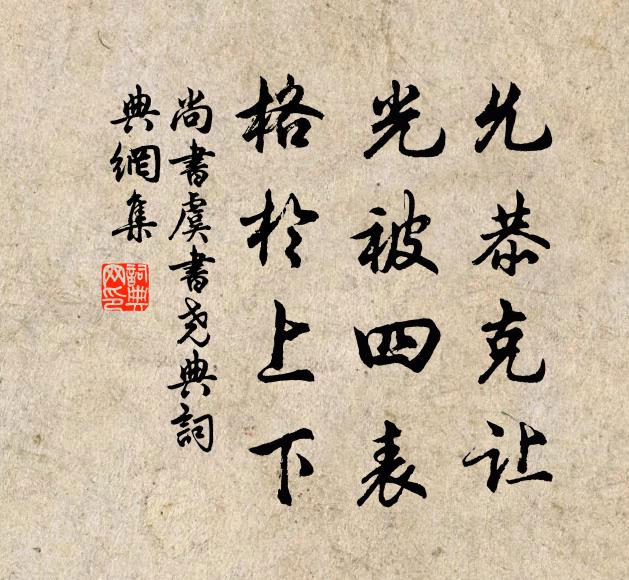 允恭克让
光被四表
格於上下
尚書虞書尧典詞
典網集
詞典网印